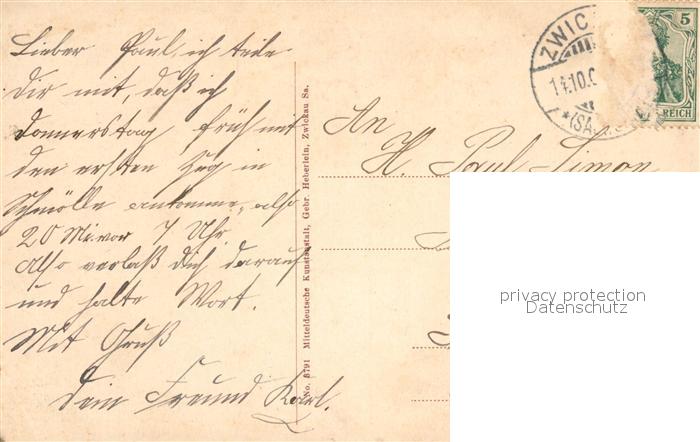 Lieber Paul, ich teile
Dir mit, daß ich
Donnerstag früh mit
den ersten Zug in
Schmölle ankomme, also
20 Mi. vor 7 Uhr.
Also verlaß Dich darauf
und halte Wort.
Mit Gruß
Dein Freund Karl.
No. 5791 Mitteldeutsche Kunstanstalt, Gebr. Heberlein, Zwickau Sa.
ZWIC
14.10.0
*(SA.
5
REICH
An
H. Paul Simon
privacy protection
Datenschutz